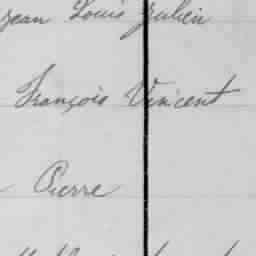 Jean Louis Julien
François Vincent
Pierre